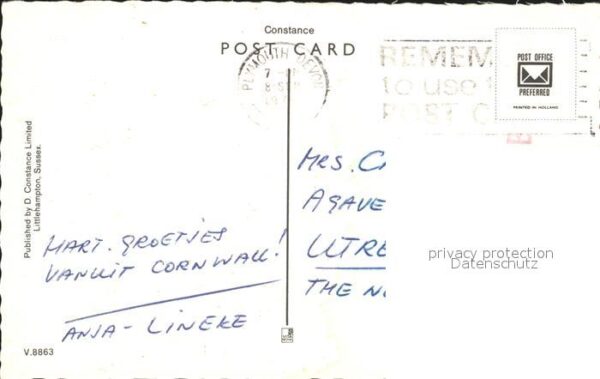 Constance
POST CARD
PLYMOUTH DEVON
REMEM
to use
POST C
POST OFFICE
PREFERRED
PRINTED IN HOLLAND
Published by D. Constance Limited
Littlehampton, Sussex.
HART. GROETJES
VANUIT CORNWALL!
ANJA - LINEKE
MRS. C
AGAVE
UTRE
THE N
privacy protection
Datenschutz
V.8863